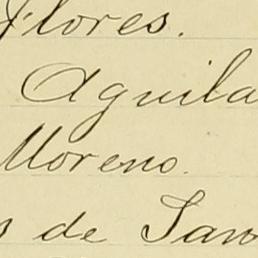 Flores.
Aguila
Moreno.
s de San